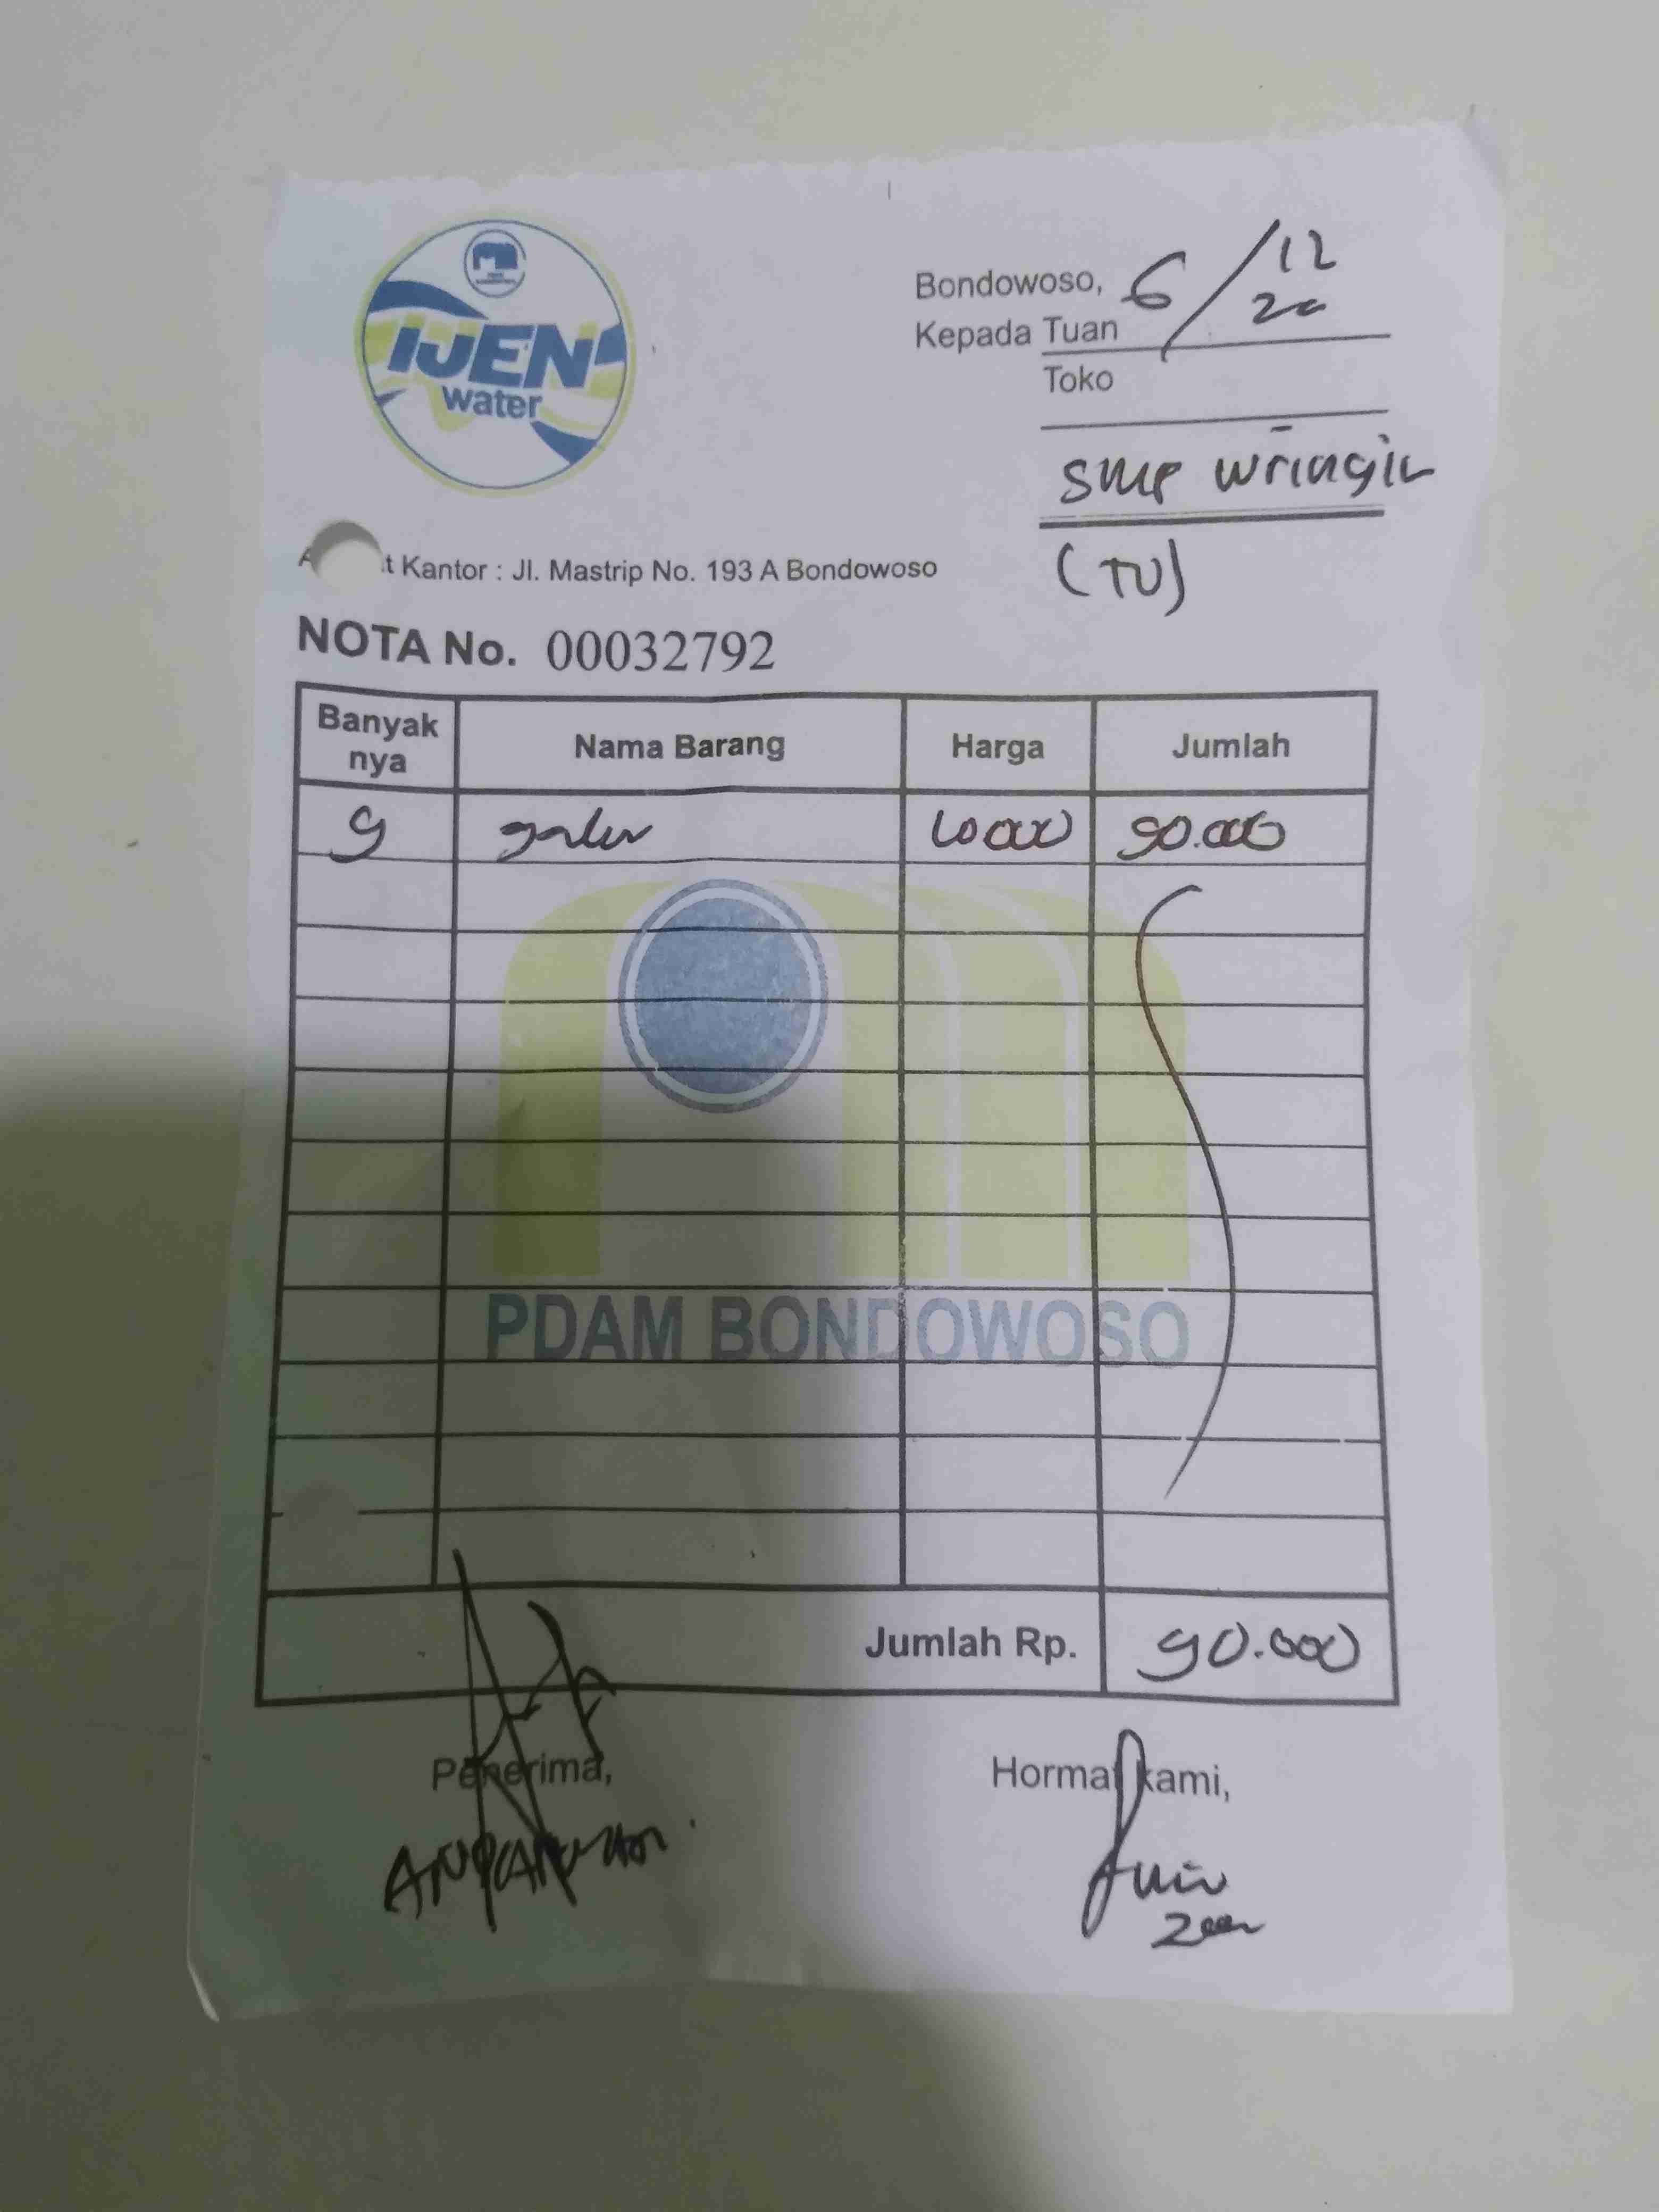 IJEN
water
Bondowoso, 6/12
20
Kepada Tuan
Toko
SMP Wringin
(TU)
t Kantor : Jl. Mastrip No. 193 A Bondowoso
NOTA No. 00032792
Banyak nya Nama Barang Harga Jumlah
9 galon 10000 90.000
PDAM BONDOWOSO
Jumlah Rp. 90.000
Penerima, Hormat kami,